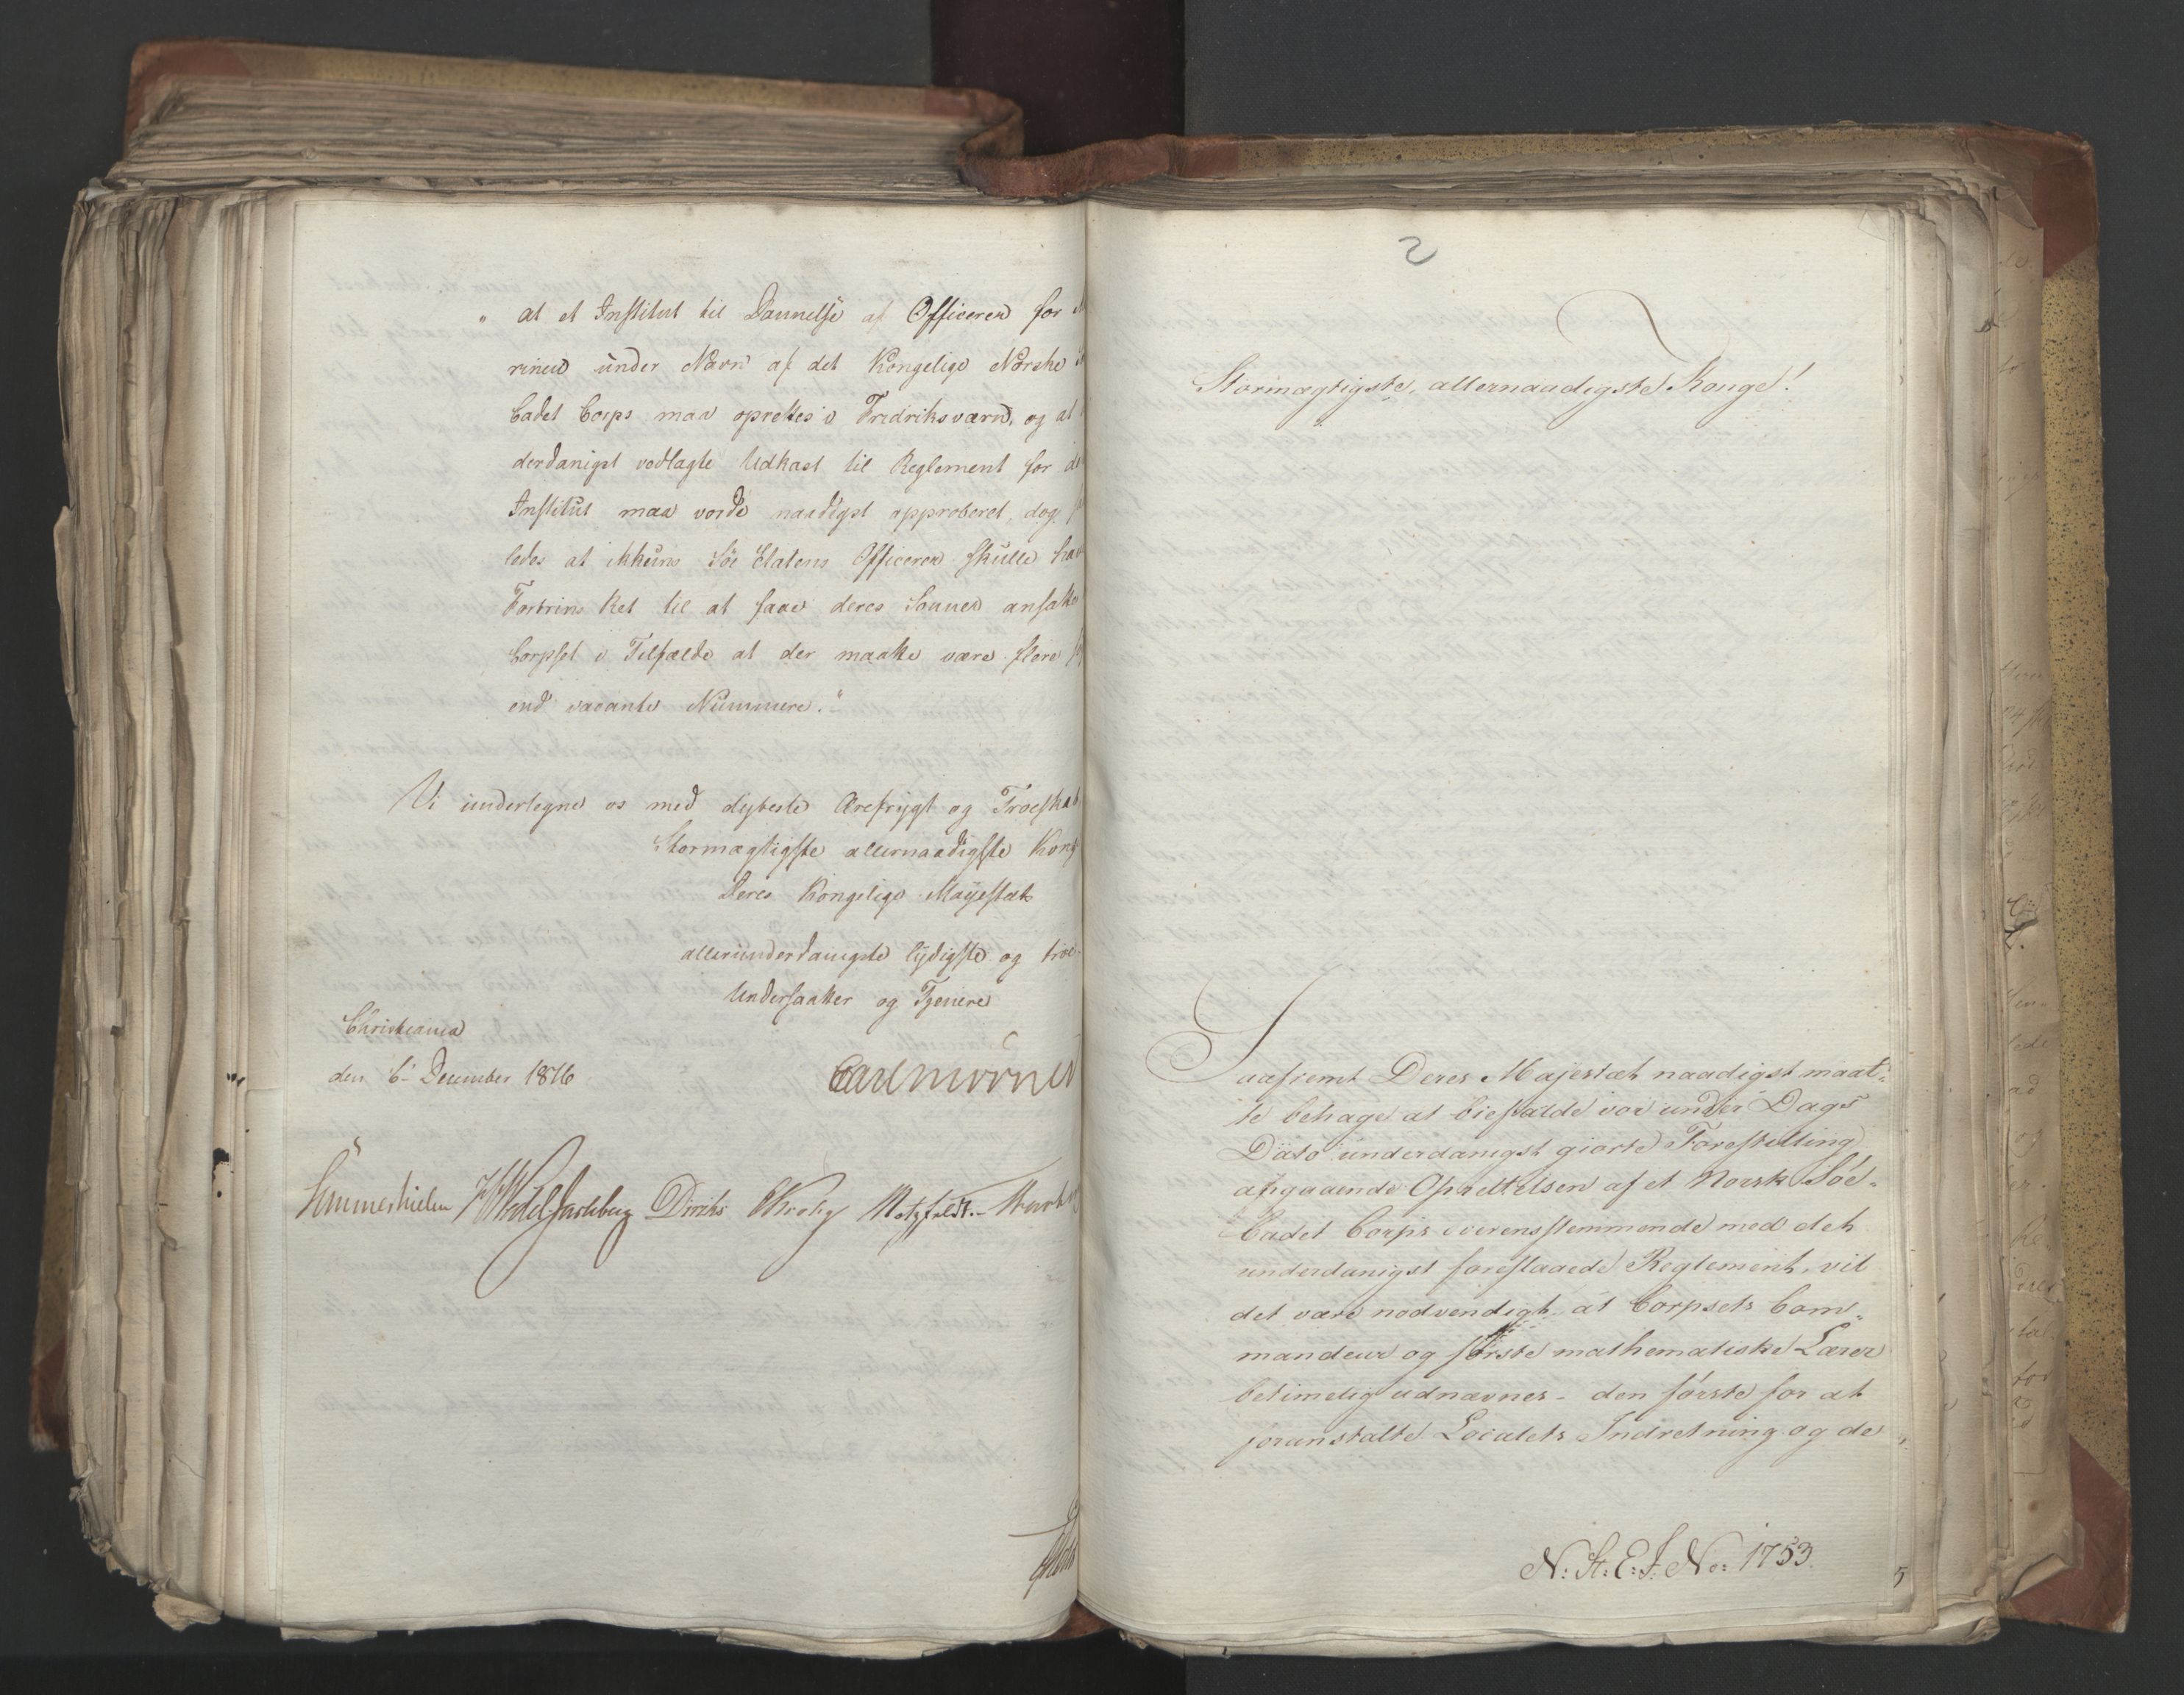 „ at et Institut til Dannelse af Officerer for
rinen under Navn af det Kongelige Norske
Cadet Corps maa oprettes i Fredriksværn, og at
derdanigst vedlagte Udkast til Reglement for
Institut maa vorde naadigst approberet, dog
ledes at ikkuns Söe Etatens Officerer skulle have
Fortrins Ret til at faae deres Sönner ansatte
Corpset i Tilfælde at der maatte være flere
end vacante Nummere.“
Vi undertegne os med dybeste Ærefrygt og Troeskab
Stormægtigste allernaadigste Kong
Deres Kongelige Mayestæts
allerunderdanigste lydigste og troe
Undersaatter og Tjenere
Christiania
den 6 December 1816
Carl Mörner
Sommerhielm HWedel Jarlsberg Diriks Krohg Motzfeldt
2
Stormægtigste, allernaadigste Konge!
Saafremt Deres Majestæt naadigst maat-
te behage at biefalde vor under Dags
Dato underdanigst giorte Forestilling
angaaende Oprettelsen af et Norsk Söe-
Cadet Corps overensstemmende med det
underdanigst foreslaaede Reglement, vil
det være nodvendigt at Corpsets Com-
mandeur og förste mathematiske Lærer
betimelig udnævnes - den förste for at
foranstalte Localets Indretning og de
N: St: E: J: No: 1753.